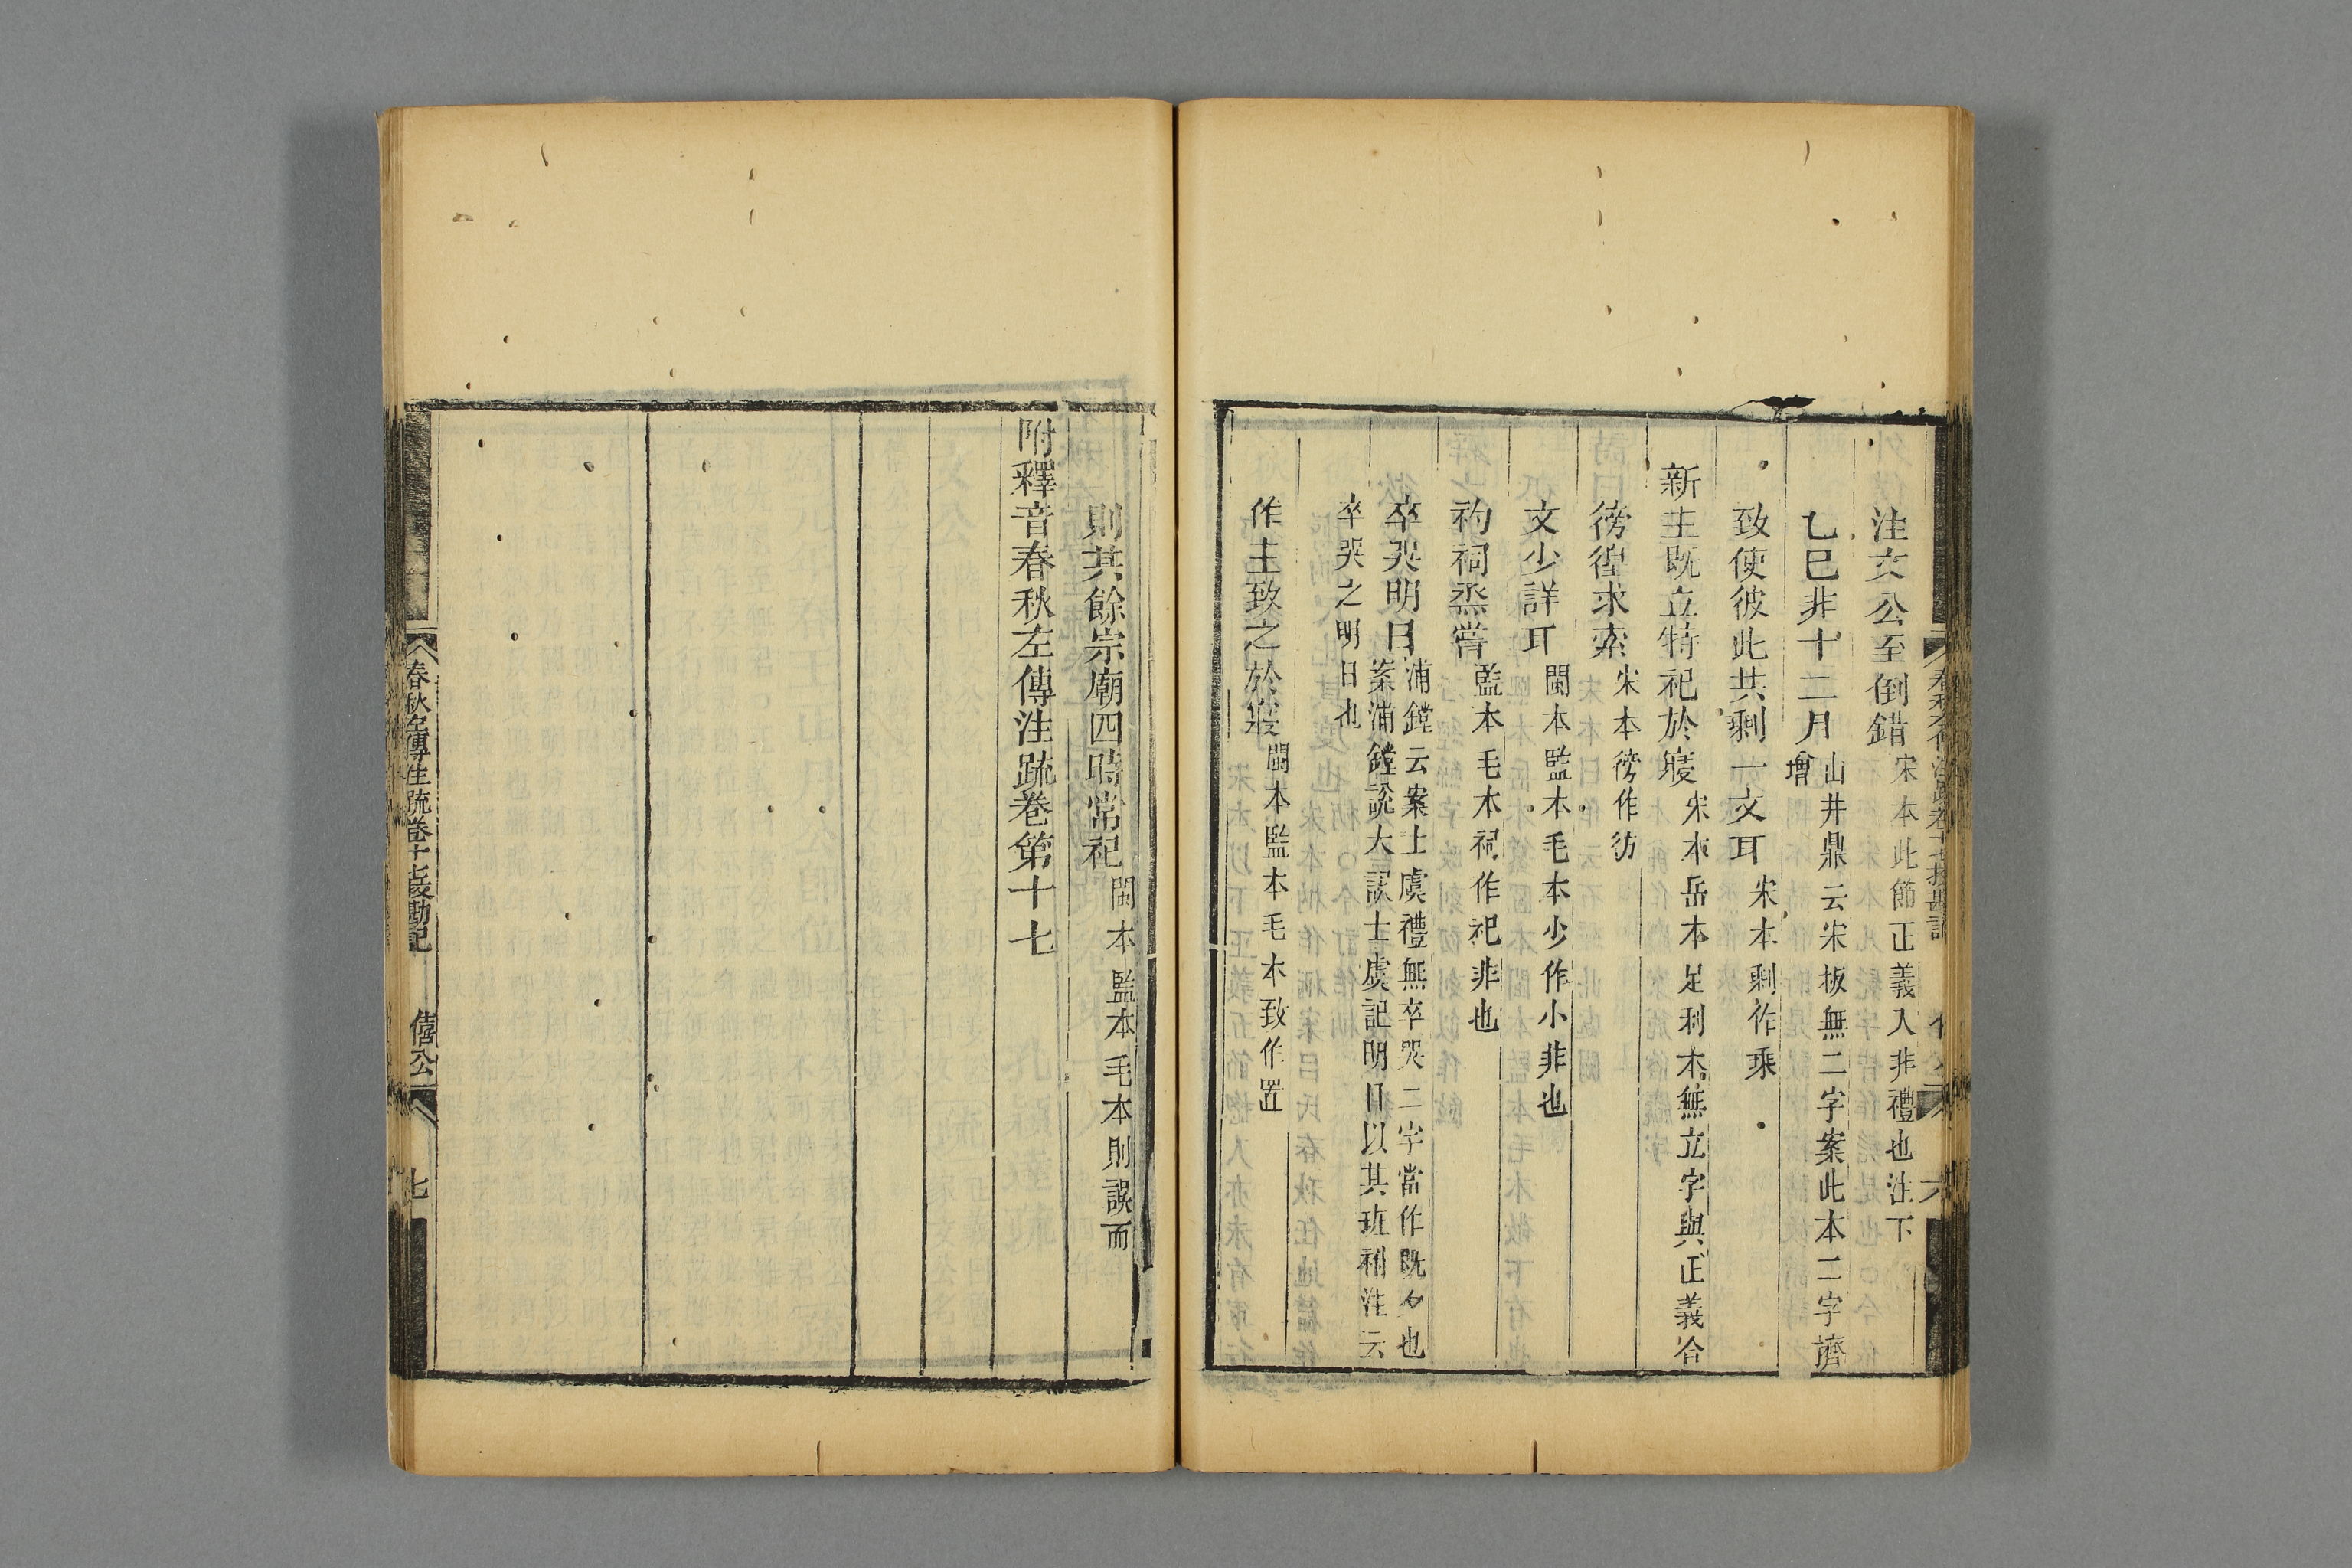 注文公至倒錯宋本此節正義入非禮也注下
乙巳非十二月山井鼎云宋板無二字案此本二字擠
增
致使彼此共剩一文耳宋本剩作乘
新主既立特祀於寢宋本岳本足利本無立字與正義合
徬徨求索宋本徬作彷
文少詳耳閩本監本毛本少作小非也
礿祠烝嘗監本毛本祠作祀非也
卒哭明日浦鏜云案士虞禮無卒哭二字當作既夕也
案浦鏜說大誤士虞記明日以其班祔注云
卒哭之明日也
作主致之於寢閩本監本毛本致作置
春秋左傳注疏卷十七挍勘記 僖公 六
則其餘宗廟四時常祀閩本監本毛本則誤而
附釋音春秋左傳注疏卷第十七
春秋左傳注疏卷十七挍勘記 僖公 七